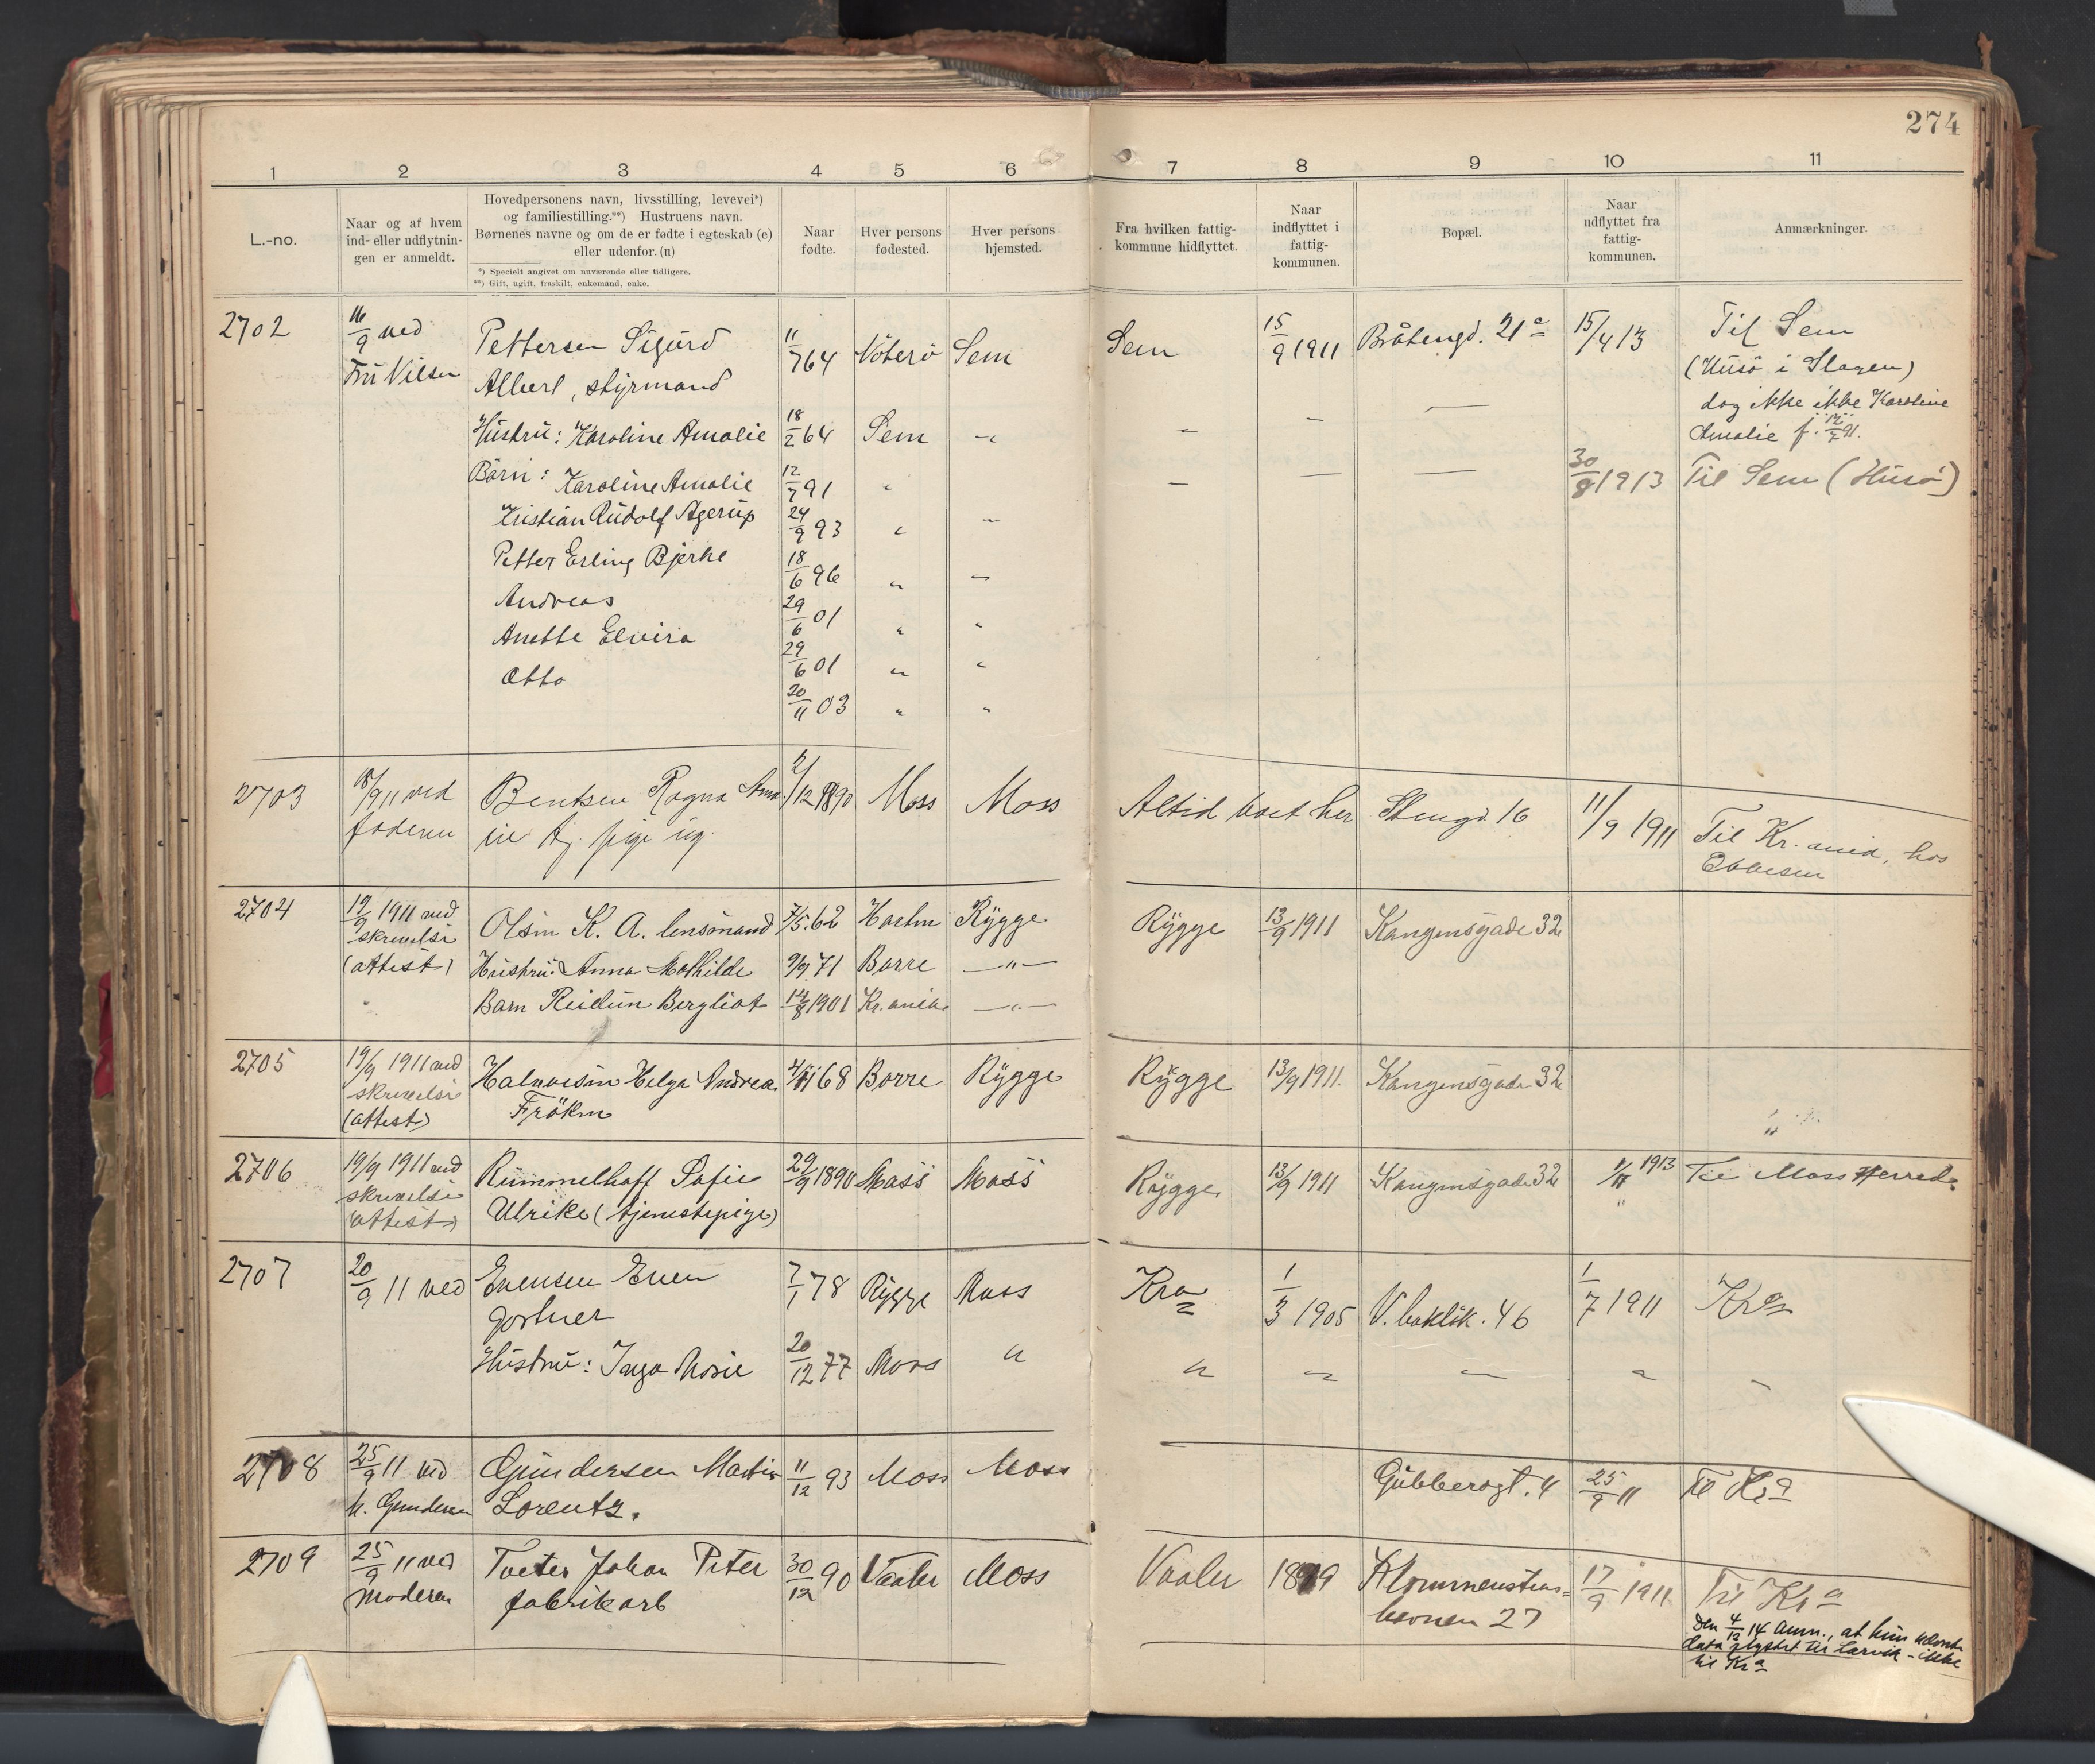 274
1 2 3 4 5 6 7 8 9 10 11
L.-no.
Naar og af hvem
ind- eller udflytnin-
gen er anmeldt.
Hovedpersonens navn, livsstilling, levevei*)
og familiestilling.**) Hustruens navn.
Børnenes navne og om de er fødte i egteskab (e)
eller udenfor. (u)
*) Specielt angivet om nuværende eller tidligere.
**) Gift, ugift, fraskilt, enkemand, enke.
Naar
fødte.
Hver persons
fødested.
Hver persons
hjemsted.
Fra hvilken fattig-
kommune hidflyttet.
Naar
indflyttet i
fattig-
kommunen.
Bopæl.
Naar
udflyttet fra
fattig-
kommunen.
Anmærkninger.
2702 16/9 ved Pettersen Sigurd 11/7 64 Nöterö Sem Sem 15/9 1911 Bråtengd. 21 15/4 13 Til Sem
Fru Nilsen Albert, styrmand (Husö i Slagen)
dog ikke ikke Karoline
Hustru: Karoline Amalie 18/2 64 Sem " " — — Amalie f. 12/7 91.
Börn: Karoline Amalie 12/7 91 " — — — 30/8 1913 Til Sem (Husö)
Kristian Rudolf Agerup 24/9 93 " "
Petter Erling Bjerke 18/6 96 " "
Andreas 29/6 01 " "
Anette Elvira 29/6 01 " "
Otto 20/11 03 " "
2703 18/9 11 ved Bentsen Ragna 2/12 1890 Moss Moss Altid boet her Stengd 16 11/9 1911 Til Kr.ania, hos
faderen tj. pige ug. Ebbesen
2704 19/9 1911 ved Olsen K. A. lensmand 7/5 62 Rygge Rygge 13/9 1911 Kongensgade 32
skrivelse
(attest) Hustru: Anna Mathilde 9/9 71 Borre — " —
Barn Reidun Bergliot 14/8 1901 Kr.ania — " —
2705 19/9 1911 ved Halvorsen Helga Andrea 68 Borre Rygge Rygge 13/9 1911. Kongensgade 32
skrivelse Fröken
(attest)
2706 19/9 1911 ved Rummelhoff Sofie 29/9 1890 Moss Moss Rygge 13/9 1911 Kongensgade 32 1913 Til Moss Herred.
skrivelse Ulrike (tjenestepige)
(attest)
2707 20/9 11 ved Evensen Even 7/1 78 Rygge Moss Kra 1/3 1905 V. baklik. 46 1/7 1911 Kra
gartner
Hustru: Inga Marie 20/12 77 Moss " " " — " "
2708 25/9 11 ved Gundersen Martin 11/12 93 Moss Moss Gubberogt. 4 25/9 11 Til Kra
h. Gundersen Lorentz.
2709 25/9 11 ved Tveter Johan Peter 30/12 90 Vaaler Moss Vaaler 17/9 1911 Til Kra
moderen fabrikarb 27
Den 4/12 14 anm., at hun
data flyttet til Larvik - ikke
til Kra